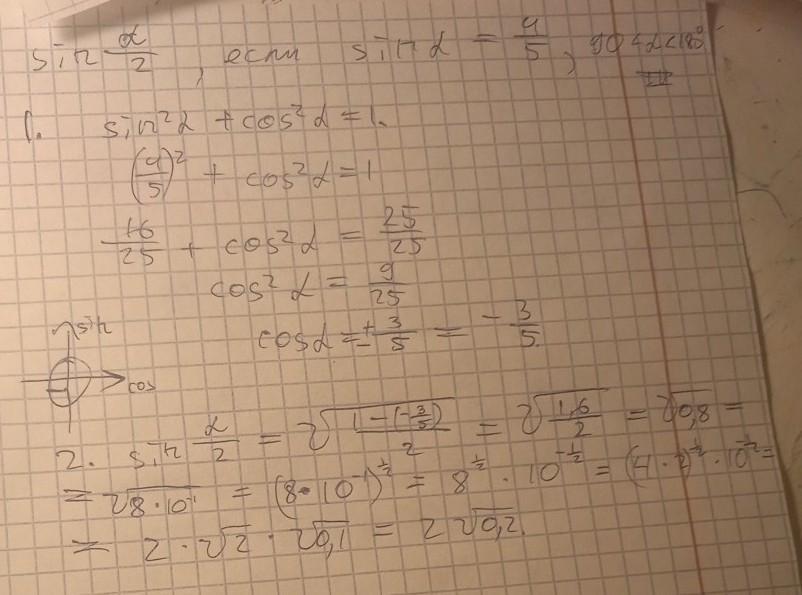 sin α/2, если sin α = 4/5, 90 < α < 180°
1. sin²α + cos²α = 1.
(4/5)² + cos²α = 1
16/25 + cos²α = 25/25
cos²α = 9/25
cosα = ± 3/5 = - 3/5.
sin
cos
2. sin α/2 = √((1-(-3/5))/2) = √(1,6/2) = √0,8 =
= √(8·10⁻¹) = (8·10⁻¹)^(1/2) = 8^(1/2) · 10^(-1/2) = (4·2)^(1/2) · 10^(-1/2) =
= 2 · √2 · √0,1 = 2√0,2.